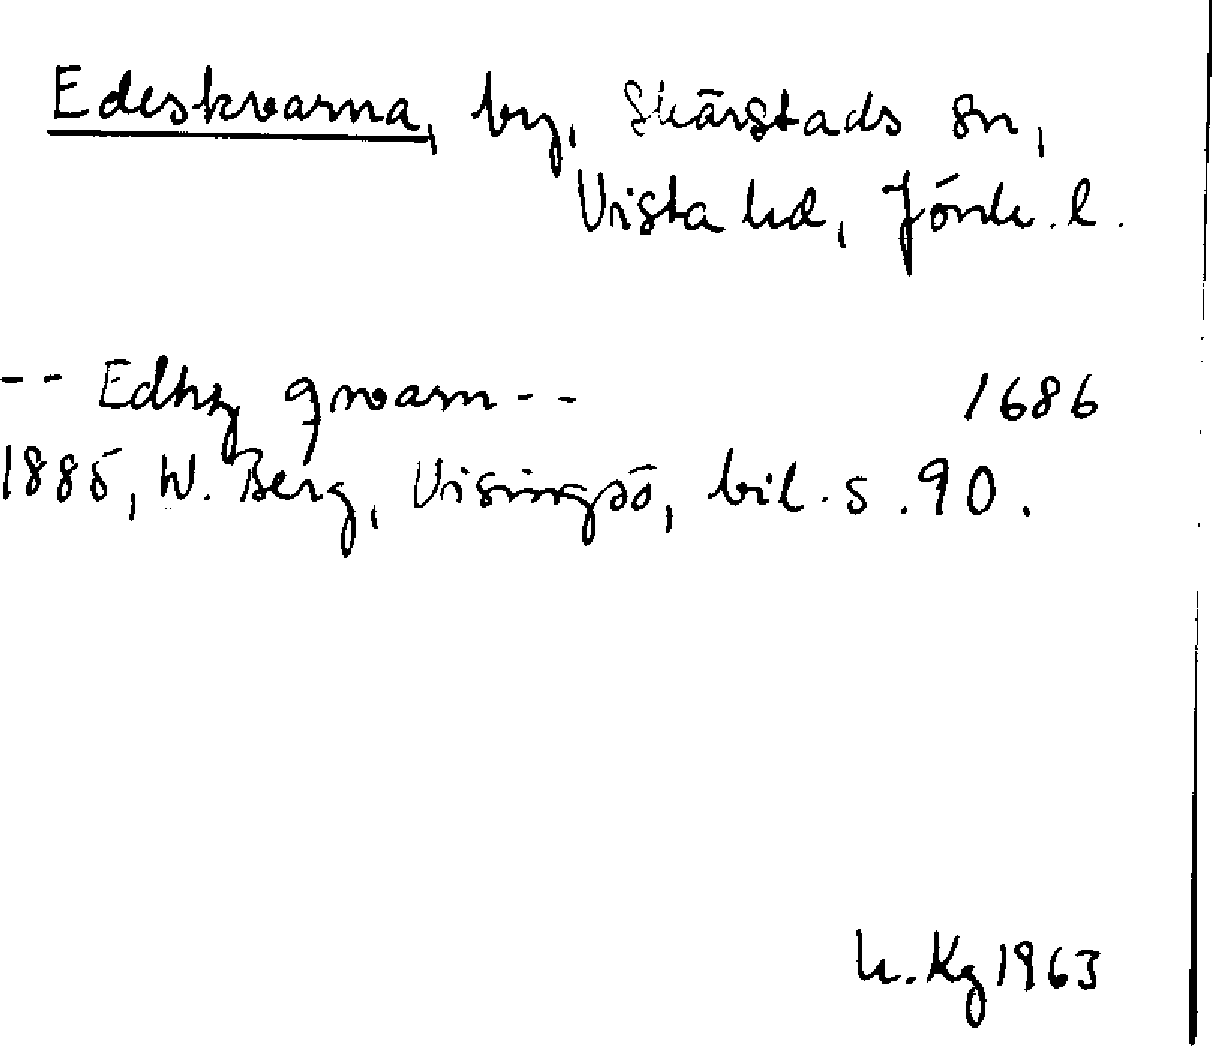 Edeskvarna, by, Skärstads sn,
Vista hd, Jönk. l.
-- Edhz qwarn -- 1686
1885, W. Berg, Visingsö, bil. s. 90.
K. Kg 1963